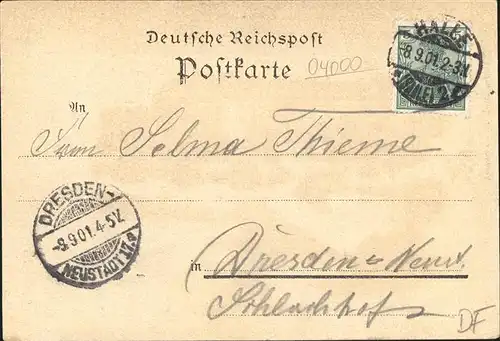 Deutsche Reichspost
Postkarte
04000
HALLE
-8.9.01.2-3N
(SAALE) 2
An
Selma Thieme
DRESDEN-
-9.9.01.4-5V.
NEUSTADT
in Dresden-Neust.
Schlachthof
DF